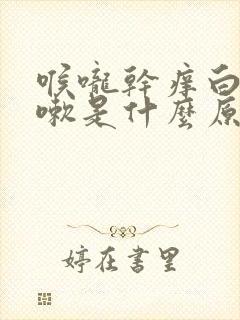 喉嚨幹癢白
嗽是什麼原
婷在書里